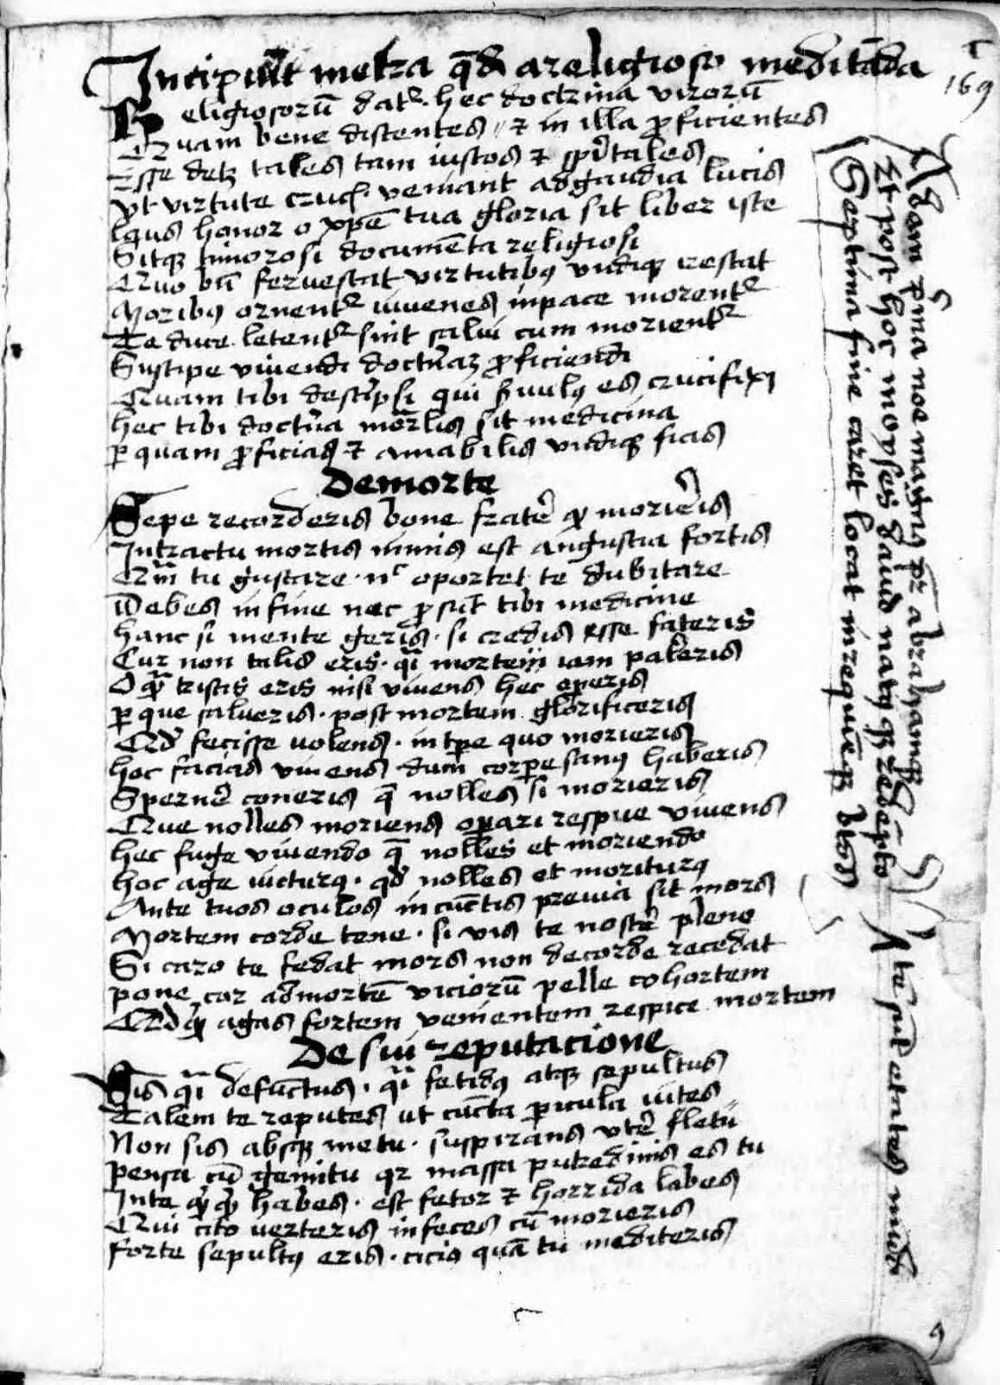 Incipiūt metra q̄dā a religioso meditāda
169
Religiosorū datr hec doctrina virorū
Quam bene discentes et in illa proficientes
Esse debz tales tam iustos et spiritales
Ut virtute crucis veniant ad gaudia lucis
Laus honor o xpē tua gloria sit liber iste
Sitqz timorosi documēta religiosi
Quo bn̄ feruescat virtutibus vndiqz crescat
Moribus ornentr iuuenes in pace morentr
Te duce letentr sint salui cum morientr
Suscipe viuendi doctrīaz proficiendi
Quam tibi descripsi qui seruulus es crucifixi
Hec tibi doctrīa mōrlis sit medicina
per quam proficias et amabilis vndiqz fias
De morte
Sepe recorderis bone frater quod morieris
In tractu mortis nimis est angustia fortis
Quā tu gustare nec oportet te dubitare
Debes in fine nec prosunt tibi medicine
Hanc si mente geris si credis esse fateris
Cur non talis eris quasi mortem iam patieris
O quam tristis eris nisi viuens hec operis
per que salueris post mortem glorificeris
Quod fecisse volens in tpe quo morieris
Hoc facias viuens dum corpe sanus haberis
Spernere coneris que nolles si morieris
Que nolles moriens operari respue viuens
Hec fuge viuendo que nolles et moriendo
Hoc age victurus quod nolles et moriturus
Ante tuos oculos in cunctis preuia sit mors
Mortem corde tene si vis te nosce plene
Si caro te fedat mors non de corde recedat
pone cor ad mortē viciorū pelle cohortem
Quodqz agas fortem venientem respice mortem
De sui reputacione
Sis quasi defunctus quasi fetidus atqz sepultus
Talem te reputes ut cuncta pericula vites
Non sis absqz metu suspirans vtere fletu
pensa cū gemitu qr massa putredinis es tu
In te quidquid habes est fetor et horrida labes
Qui cito verteris in feces cū morieris
forte sepultus eris cicius quā tu mediteris
Adam pma noe matris pr abrahamqz
Et post hoc moyses dauid natus qz redēpto
Septima fine caret locat in requieqz btos
A te sūt etates mūdi
9